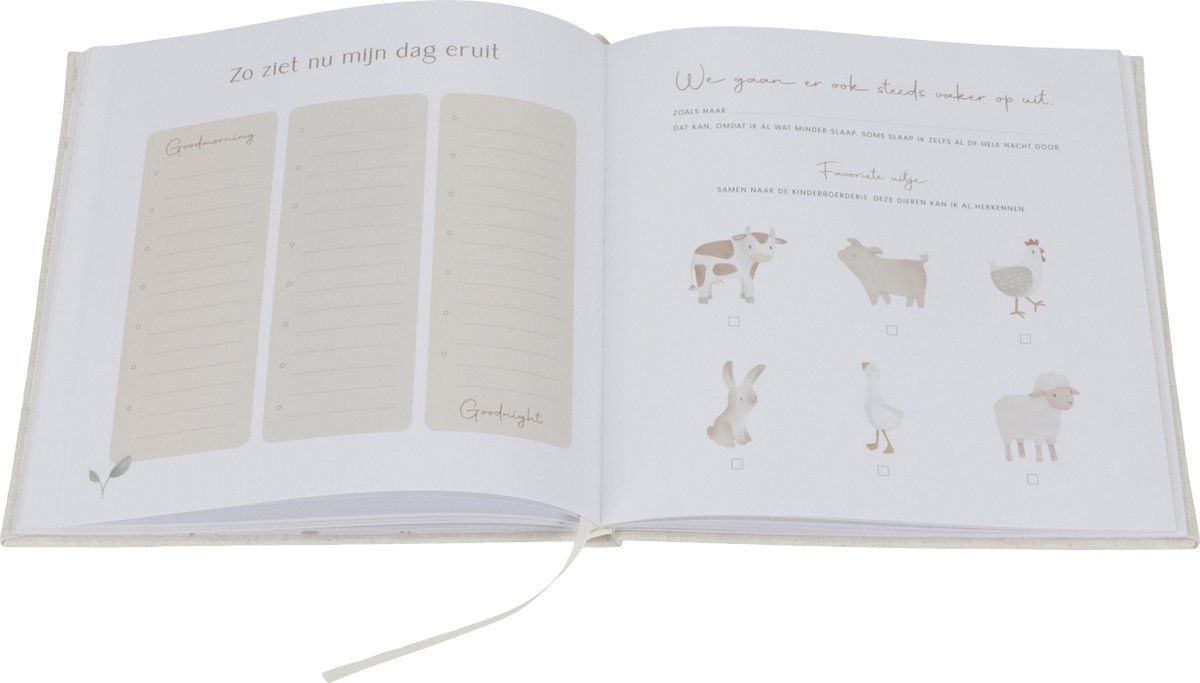 Zo ziet nu mijn dag eruit
Goodmorning
Goodnight
We gaan er ook steeds vaker op uit.
ZOALS NAAR
DAT KAN, OMDAT IK AL WAT MINDER SLAAP. SOMS SLAAP IK ZELFS AL DE HELE NACHT DOOR
Favoriete uitje
SAMEN NAAR DE KINDERBOERDERIJ. DEZE DIEREN KAN IK AL HERKENNEN: